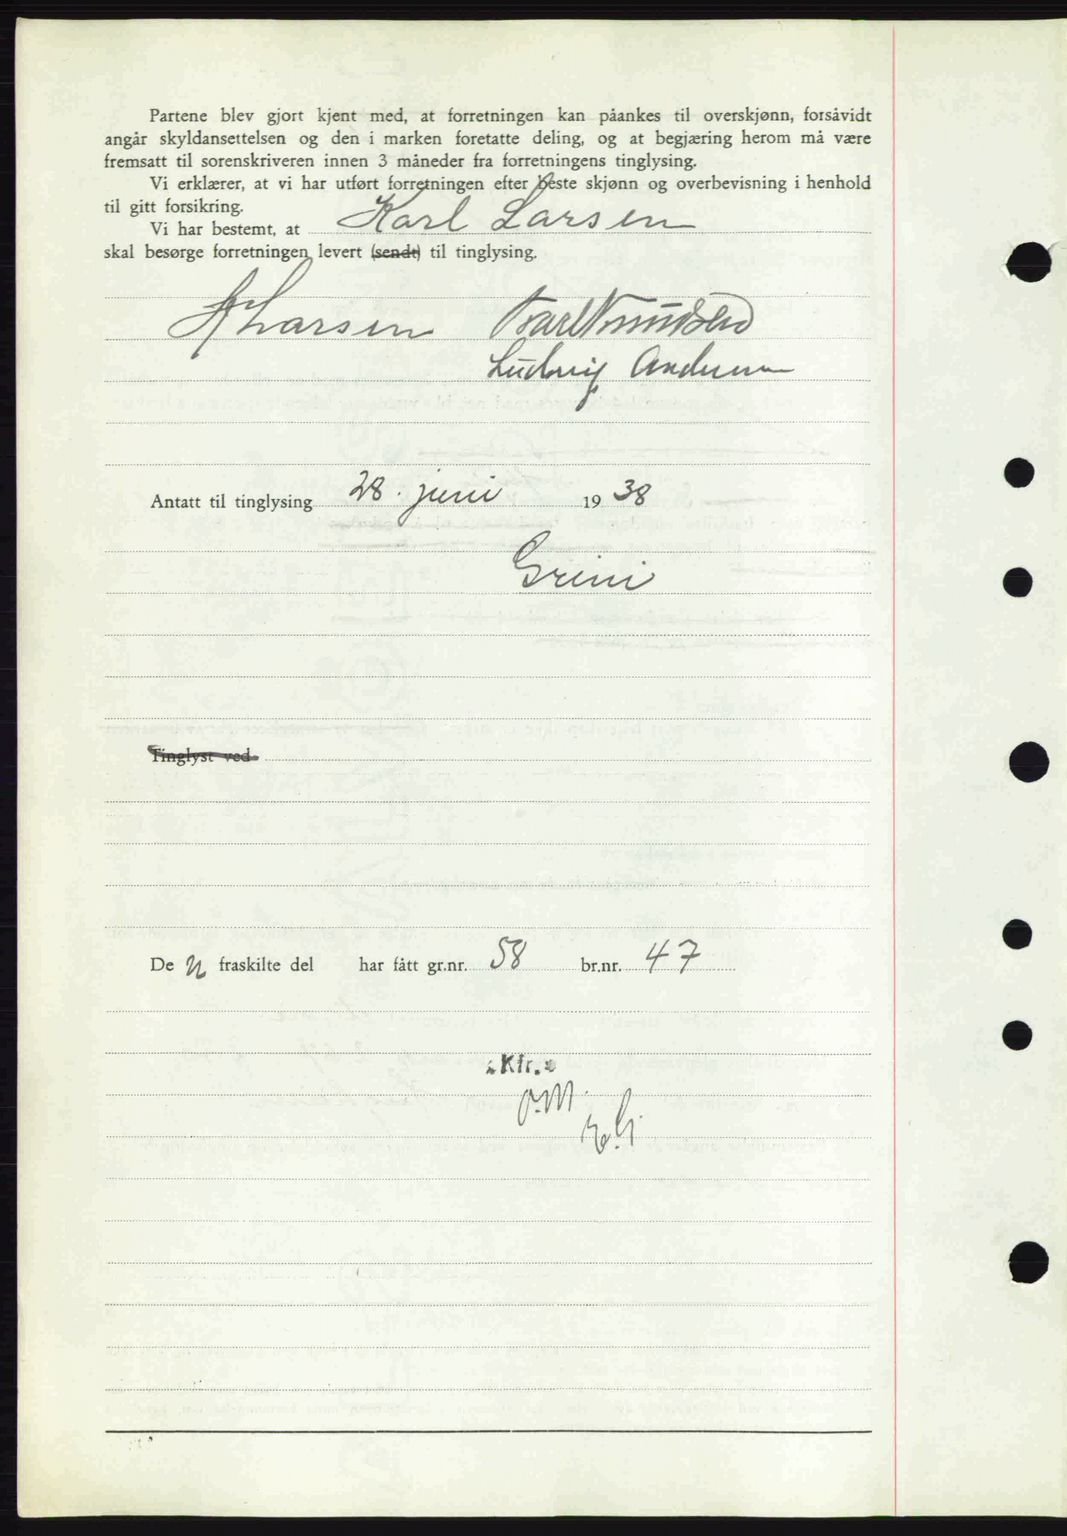 Partene blev gjort kjent med, at forretningen kan påankes til overskjønn, forsåvidt
angår skyldansettelsen og den i marken foretatte deling, og at begjæring herom må være
fremsatt til sorenskriveren innen 3 måneder fra forretningens tinglysing.
Vi erklærer, at vi har utført forretningen efter beste skjønn og overbevisning i henhold
til gitt forsikring.
Vi har bestemt, at Karl Larsen
skal besørge forretningen levert (sendt) til tinglysing.
K Larsen Karl Knudsen
Ludvig Andersen
Antatt til tinglysing 28. juni 1938
Grini
Tinglyst ved
De n fraskilte del har fått gr.nr. 58 br.nr. 47
Kfr.